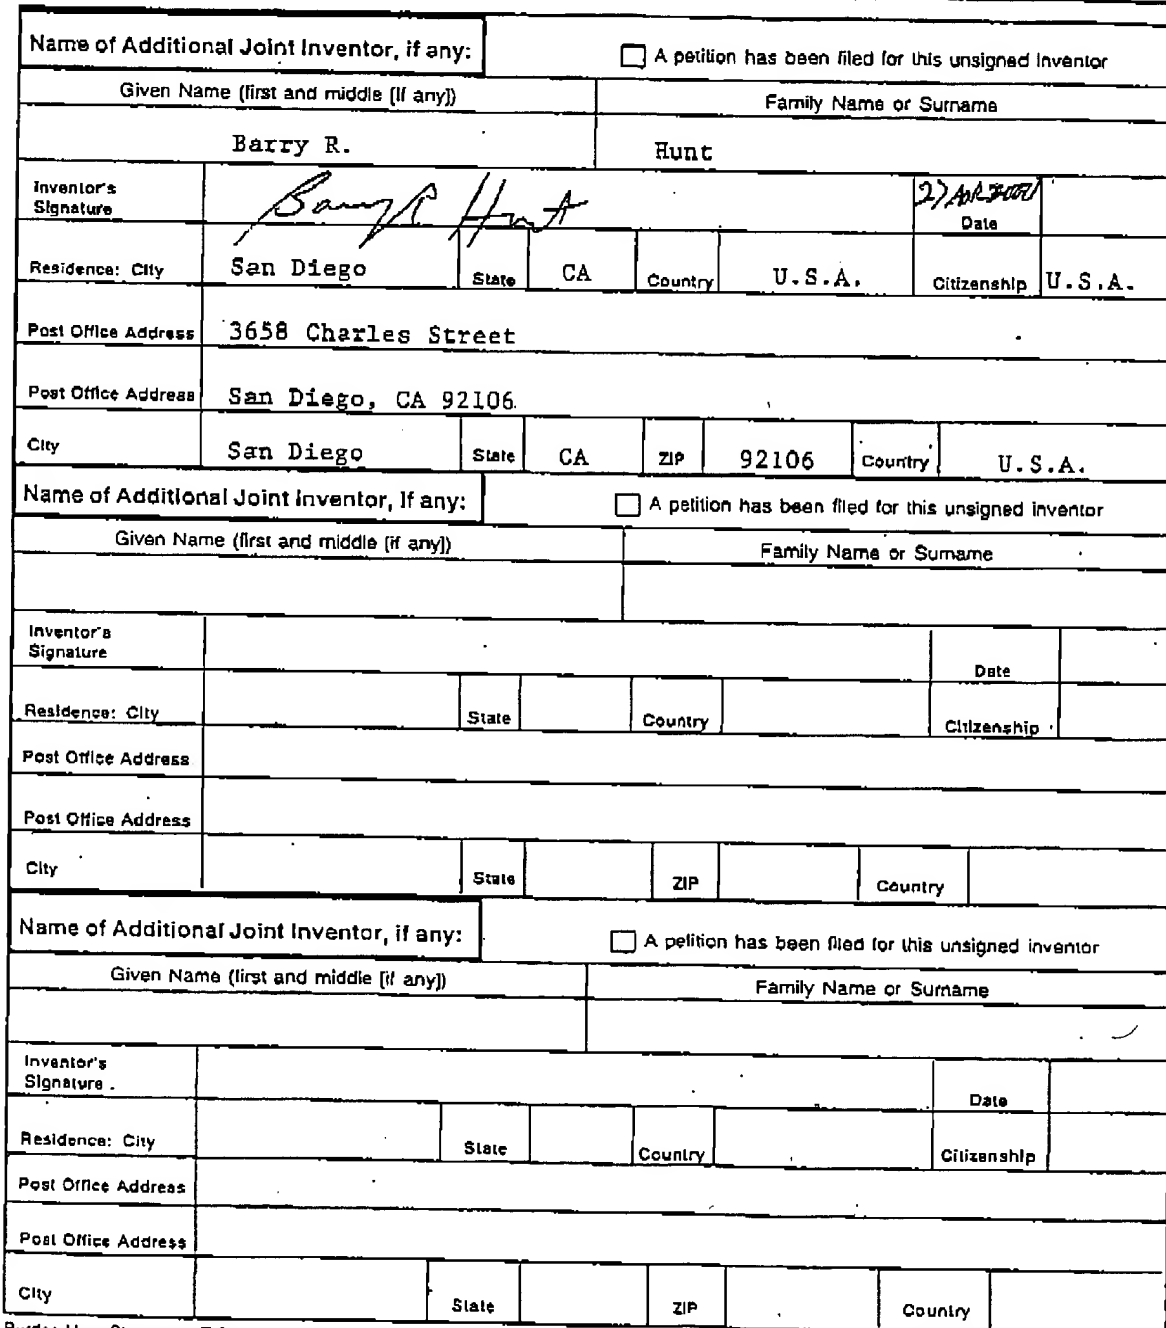 Name of Additional Joint Inventor, if any: A petition has been filed for this unsigned inventor
Given Name (first and middle [if any]) Family Name or Surname
Barry R. Hunt
Inventor's Signature Barry R Hunt Date
Residence: City San Diego State CA Country U.S.A. Citizenship U.S.A.
Post Office Address 3658 Charles Street
Post Office Address San Diego, CA 92106
City San Diego State CA ZIP 92106 Country U.S.A.
Name of Additional Joint Inventor, if any: A petition has been filed for this unsigned inventor
Given Name (first and middle [if any]) Family Name or Surname
Inventor's Signature Date
Residence: City State Country Citizenship
Post Office Address
Post Office Address
City State ZIP Country
Name of Additional Joint Inventor, if any: A petition has been filed for this unsigned inventor
Given Name (first and middle [if any]) Family Name or Surname
Inventor's Signature Date
Residence: City State Country Citizenship
Post Office Address
Post Office Address
City State ZIP Country